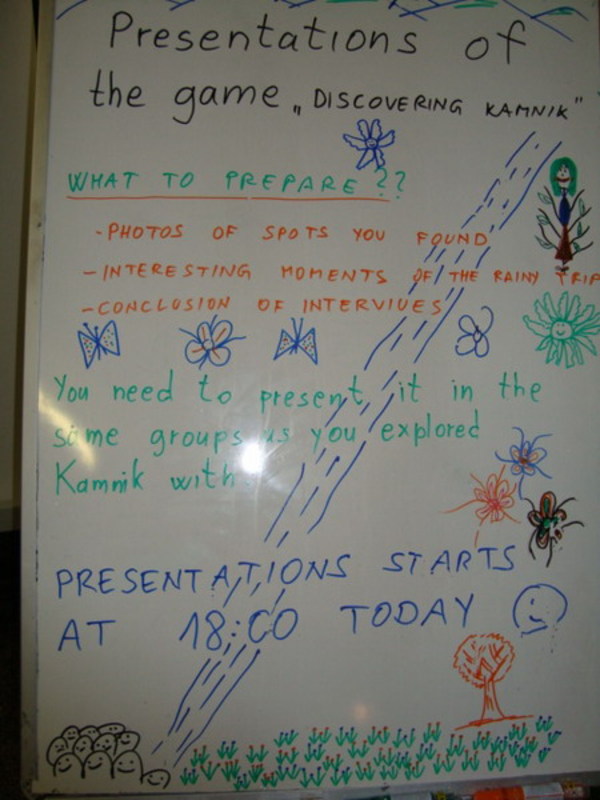 Presentations of
the game „DISCOVERING KAMNIK"
WHAT TO PREPARE??
-PHOTOS OF SPOTS YOU FOUND
-INTERESTING MOMENTS OF THE RAINY TRIP
-CONCLUSION OF INTERVIUES
You need to present it in the
same groups as you explored
Kamnik with.
PRESENTATIONS STARTS
AT 18:00 TODAY